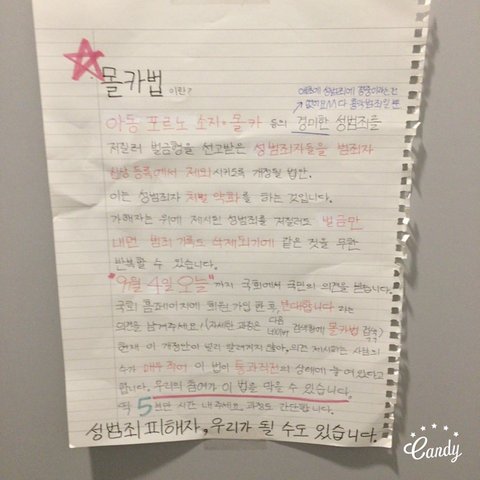 몰카법 이란?
애초에 성범죄에 경중이라는건
없어요!! 다 흉악범죄일 뿐
아동 포르노 소지·몰카 등의 경미한 성범죄를
저질러 벌금형을 선고받은 성범죄자들을 범죄자
신상 등록에서 제외 시키도록 개정될 법안.
이는 성범죄자 처벌 약화를 하는 것입니다.
가해자는 위에 제시된 성범죄를 저질러도 벌금만
내면 범죄 기록도 삭제되기에 같은 짓을 무한
반복할 수 있습니다.
"9월 4일 오늘" 까지 국회에서 국민의 의견을 받습니다.
국회 홈페이지에 회원 가입 완료, 반대합니다 라는
의견을 남겨주세요! (자세한 과정은 다음 네이버 검색창에 몰카법 접속)
현재 이 개정안이 널리 알려지지 않아, 의견 제시하는 사람의
수가 매우 적어 이 법이 통과직전의 상태에 놓여있다고
합니다. 우리의 참여가 이 법을 막을 수 있습니다.
딱 5분만 시간 내주세요. 과정도 간단합니다.
성범죄 피해자, 우리가 될 수도 있습니다.
Candy